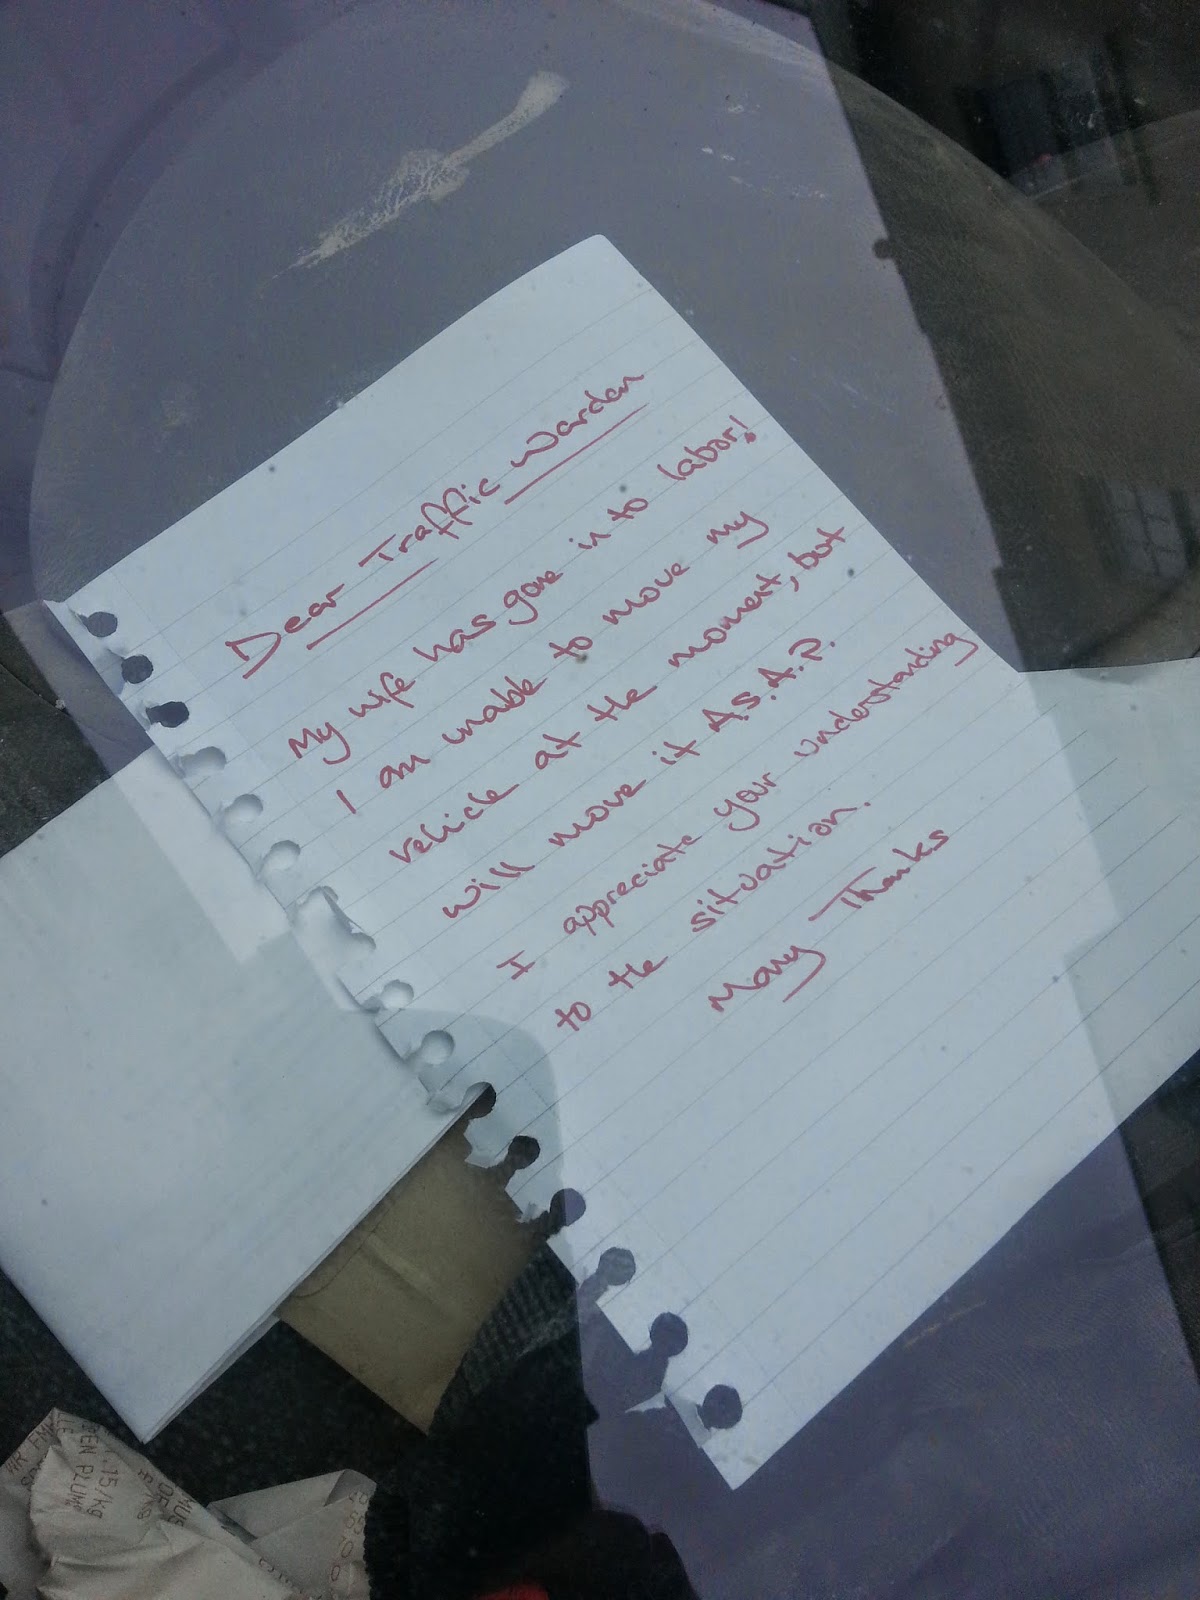 Dear Traffic Warden
My wife has gone in to labor!
I am unable to move my
vehicle at the moment, but
will move it A.S.A.P.
I appreciate your understanding
to the situation.
Many Thanks
.15/kg